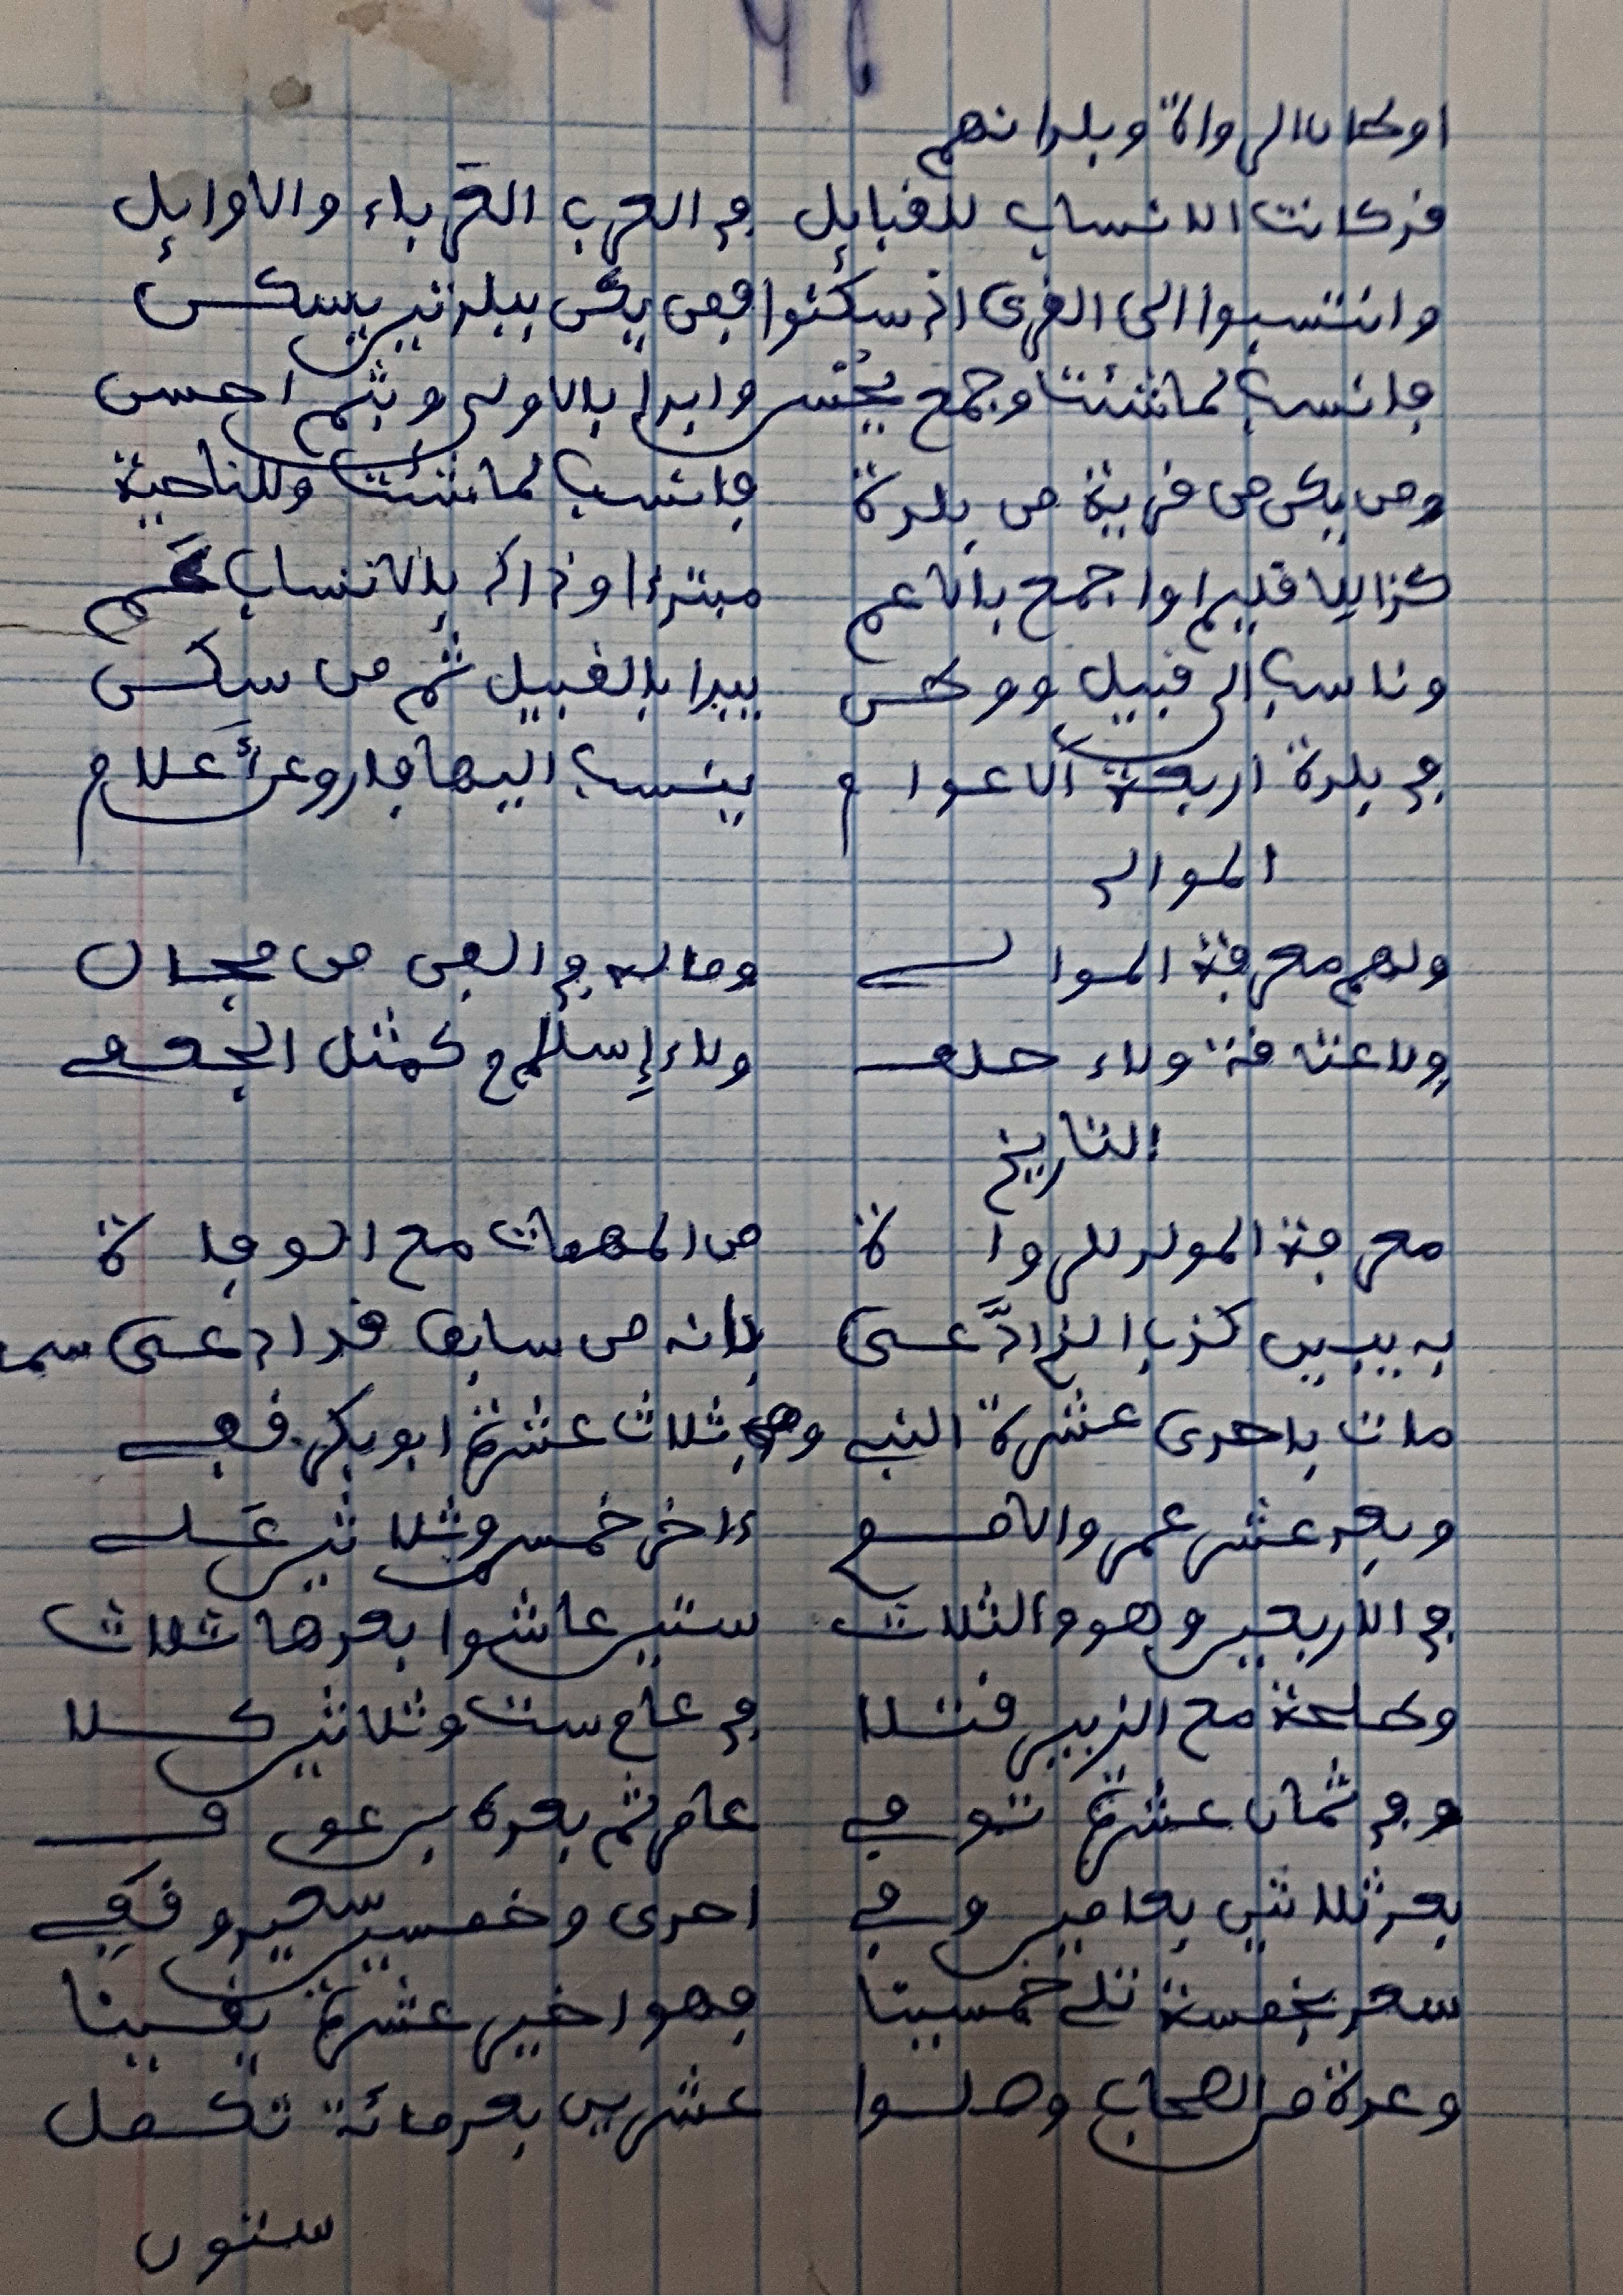 46
اوطان الرواة وبلدانهم
قد كانت الانساب للقبايل في العرب العَرباء والاوايل
وانتسبوا الى القرى اذ سكنوا فمن يكن ببلدتين يسكن
فانسب لما شئت وجمع يحسن وابدا بالاولى وبثم احسن
ومن يكن من قرية من بلدة فانسب لما شئت وللناحية
كذا لاقليم او اجمع بالاعم مبتدءا وذاك بالانساب عَم
وناسب الى قبيل ووطن يبدا بالقبيل ثم من سكن
في بلدة اربعة الاعوام ينسب اليها فارو عن أَعلام
الموالي
ولهم معرفة الموالي وما له في الفن من مجال
ولا عتاقة ولاء حلف ولاء إسلام كمثل الجعفي
التاريخ
معرفة المولد للرواة من المهمات مع الوفاة
به يبين كذب الذي ادَّعى بانه من سابق قد ادعى سم
مات باحدى عشرة النبي وفي ثلاث عشرة ابو بكر قفي
وبعد عشر عمر والاموي ءاخر خمس وثلاثين عَلي
في الاربعين وهو والثلاث ستين عاشوا بعدها ثلاث
وطلحة مع الزبير قتلا في عام ست وثلاثين كلا
وفي ثمان عشرة توفي عامر ثم بعده بن عوف
بعد ثلاثين بعامين وفي احدى وخمسين سعيد وقَفي
سعد بخمسة تلي خمسينا فهو اخير عشرة يقينا
وعدة من الصحاب وصلوا عشرين بعد مائة تكمل
ستون